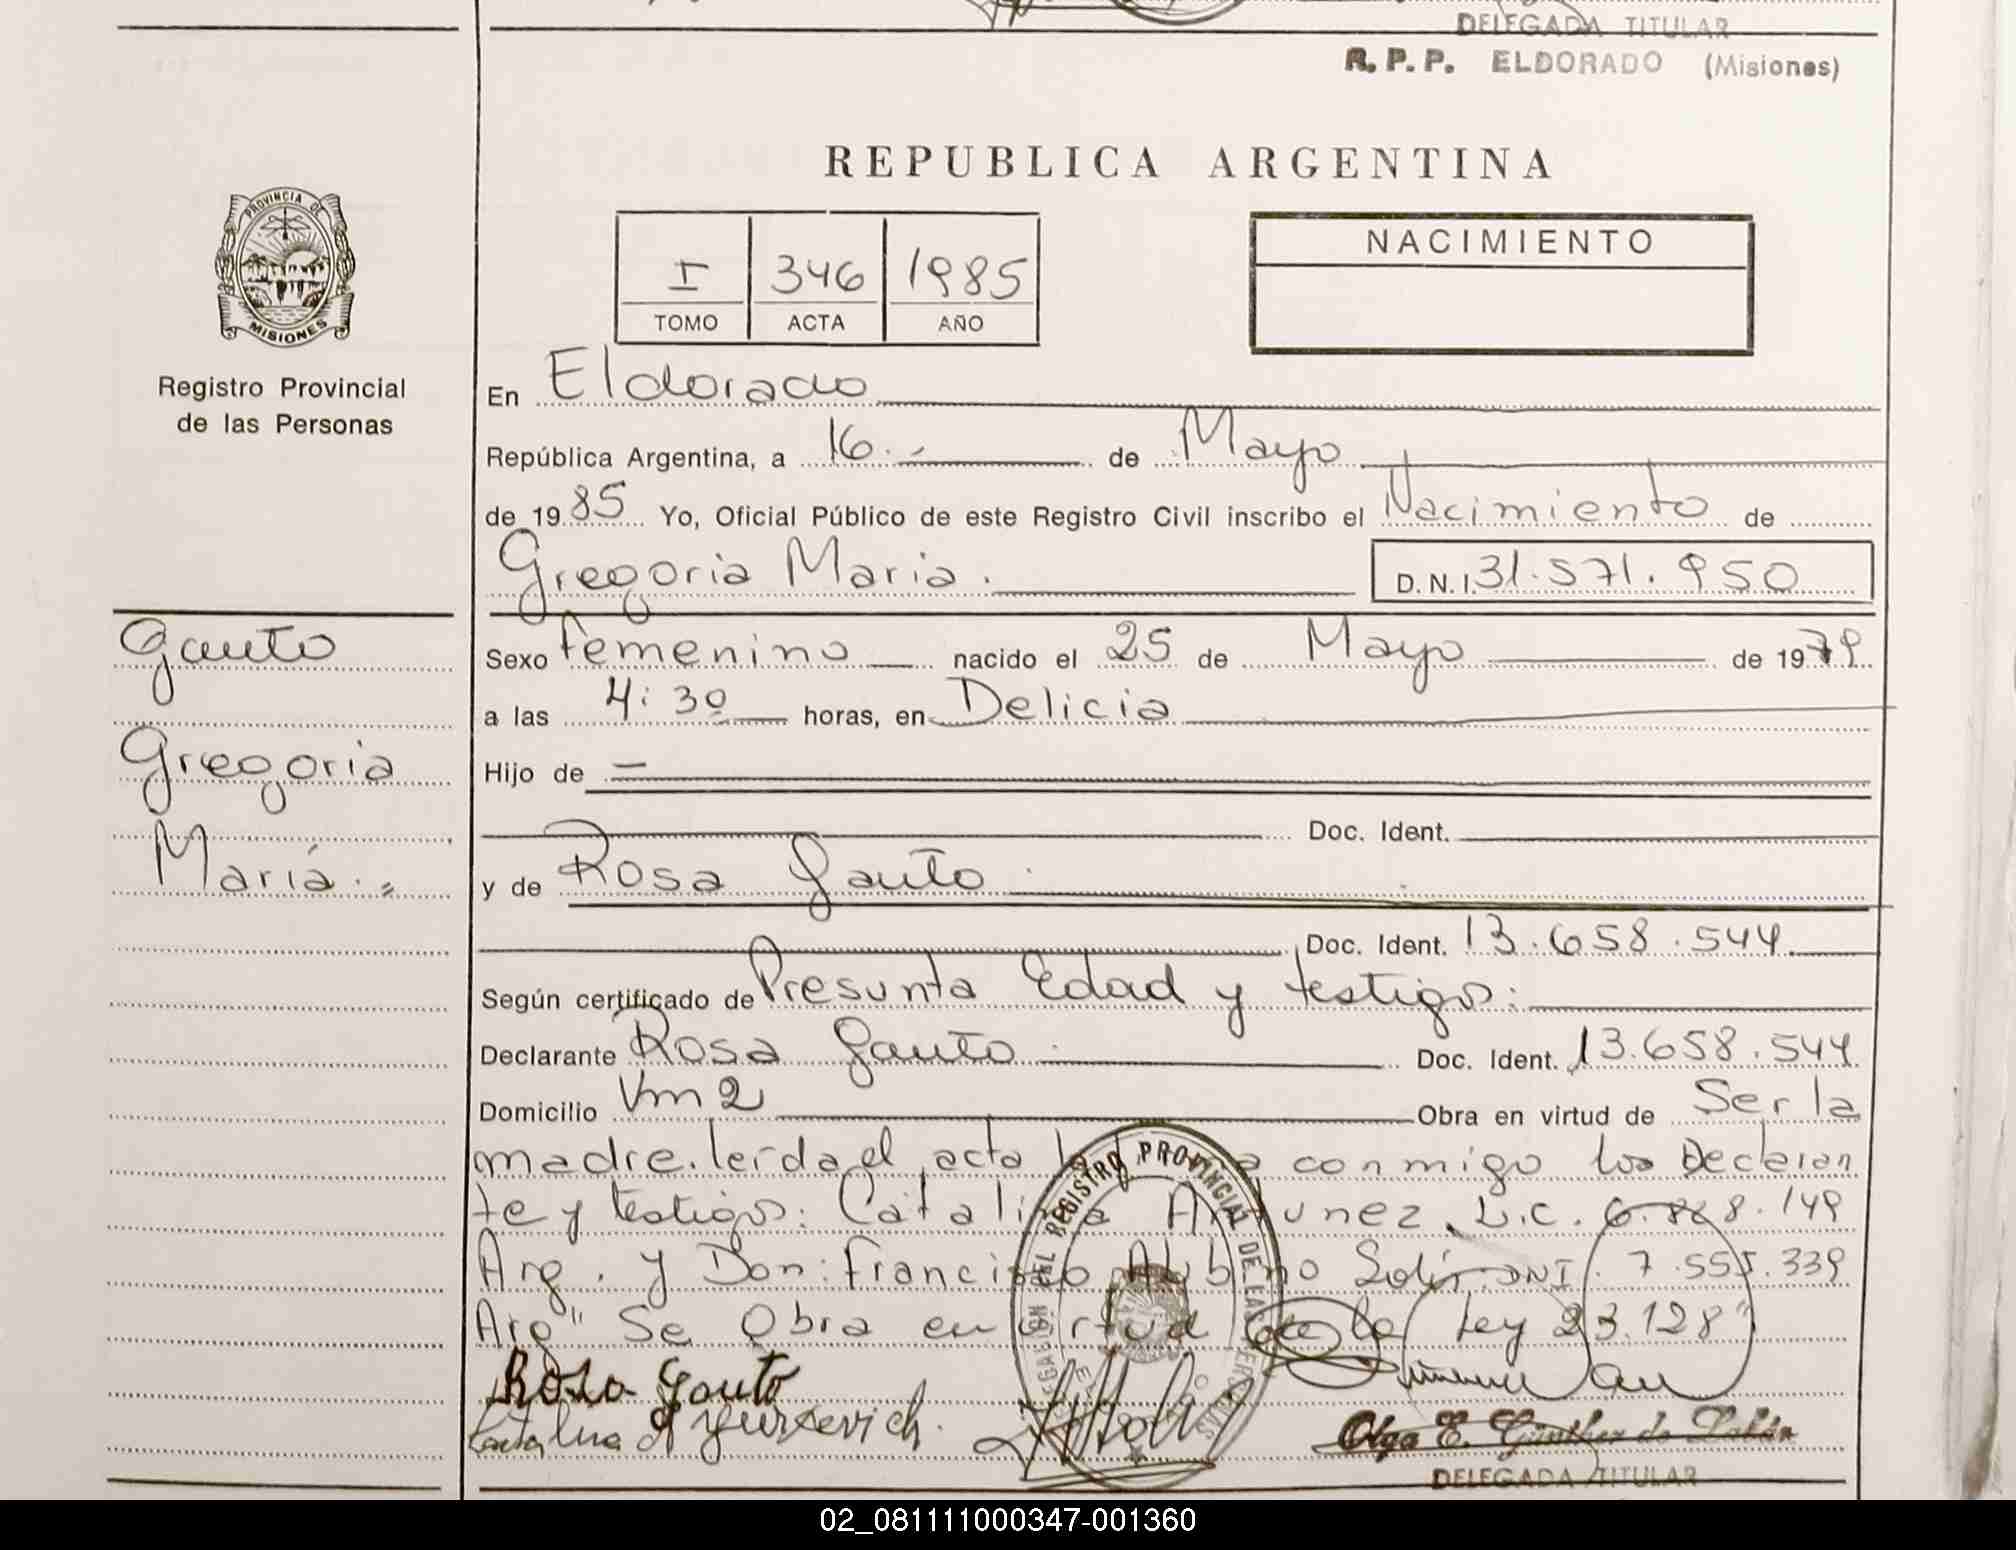 DELEGADA TITULAR
R. P. P. ELDORADO (Misiones)
REPUBLICA ARGENTINA
PROVINCIA DE
MISIONES
Registro Provincial
de las Personas
I 346 1985
TOMO ACTA AÑO
NACIMIENTO
En Eldorado
República Argentina, a 16 de Mayo
de 1985 Yo, Oficial Público de este Registro Civil inscribo el Nacimiento de
Gregoria Maria. D. N. I. 31.571.950
Gauto
Gregoria
María.=
Sexo femenino nacido el 25 de Mayo de 1979
a las 4:30 horas, en Delicia
Hijo de —
Doc. Ident.
y de Rosa Gauto
Doc. Ident. 13.658.544
Según certificado de Presunta Edad y testigos:
Declarante Rosa Gauto Doc. Ident. 13.658.544
Domicilio Km 2 Obra en virtud de Ser la
madre. leída el acta conmigo los Declaran
te y testigos: Catalina L.C. 6.828.149
Arg. y Don: Francisco Albino Solís DNI. 7.555.339
Arg "Se Obra en virtud de la Ley 23.128"
Rosa Gauto
Catalina A Yurxevich.
Olga E. Günther de
DELEGADA TITULAR
DEL REGISTRO PROVINCIAL DE LAS PERSONAS
02_081111000347-001360